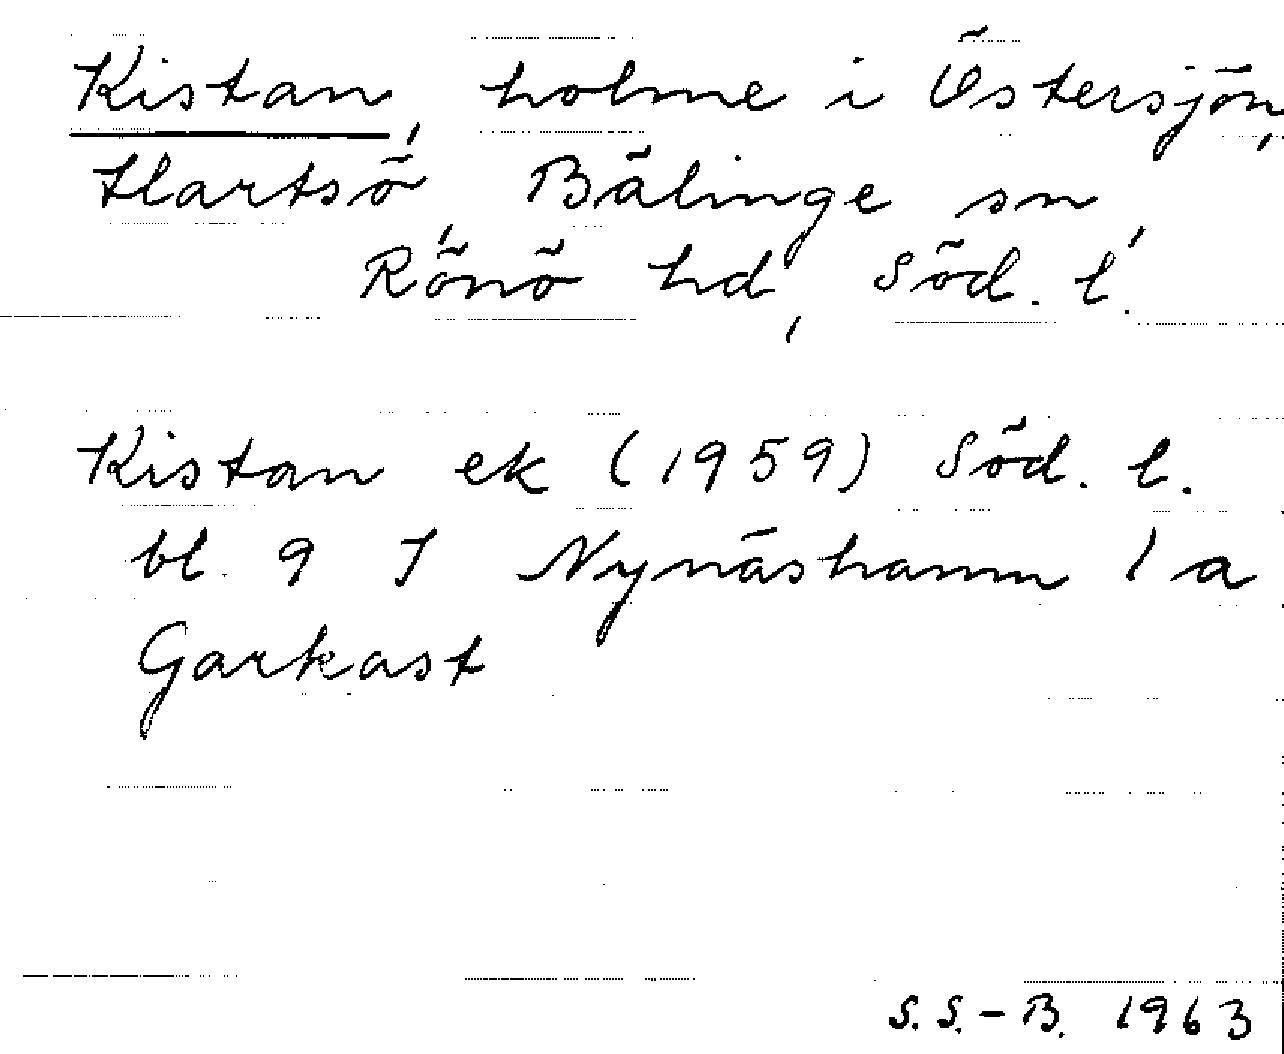 Kistan, holme i Östersjön,
Hartsö, Bälinge sn,
Rönö hd, Söd. l.
Kistan ek (1959) Söd. l.
bl. 9 I Nynäshamn 1 a
Garkast
S.S.-B. 1963